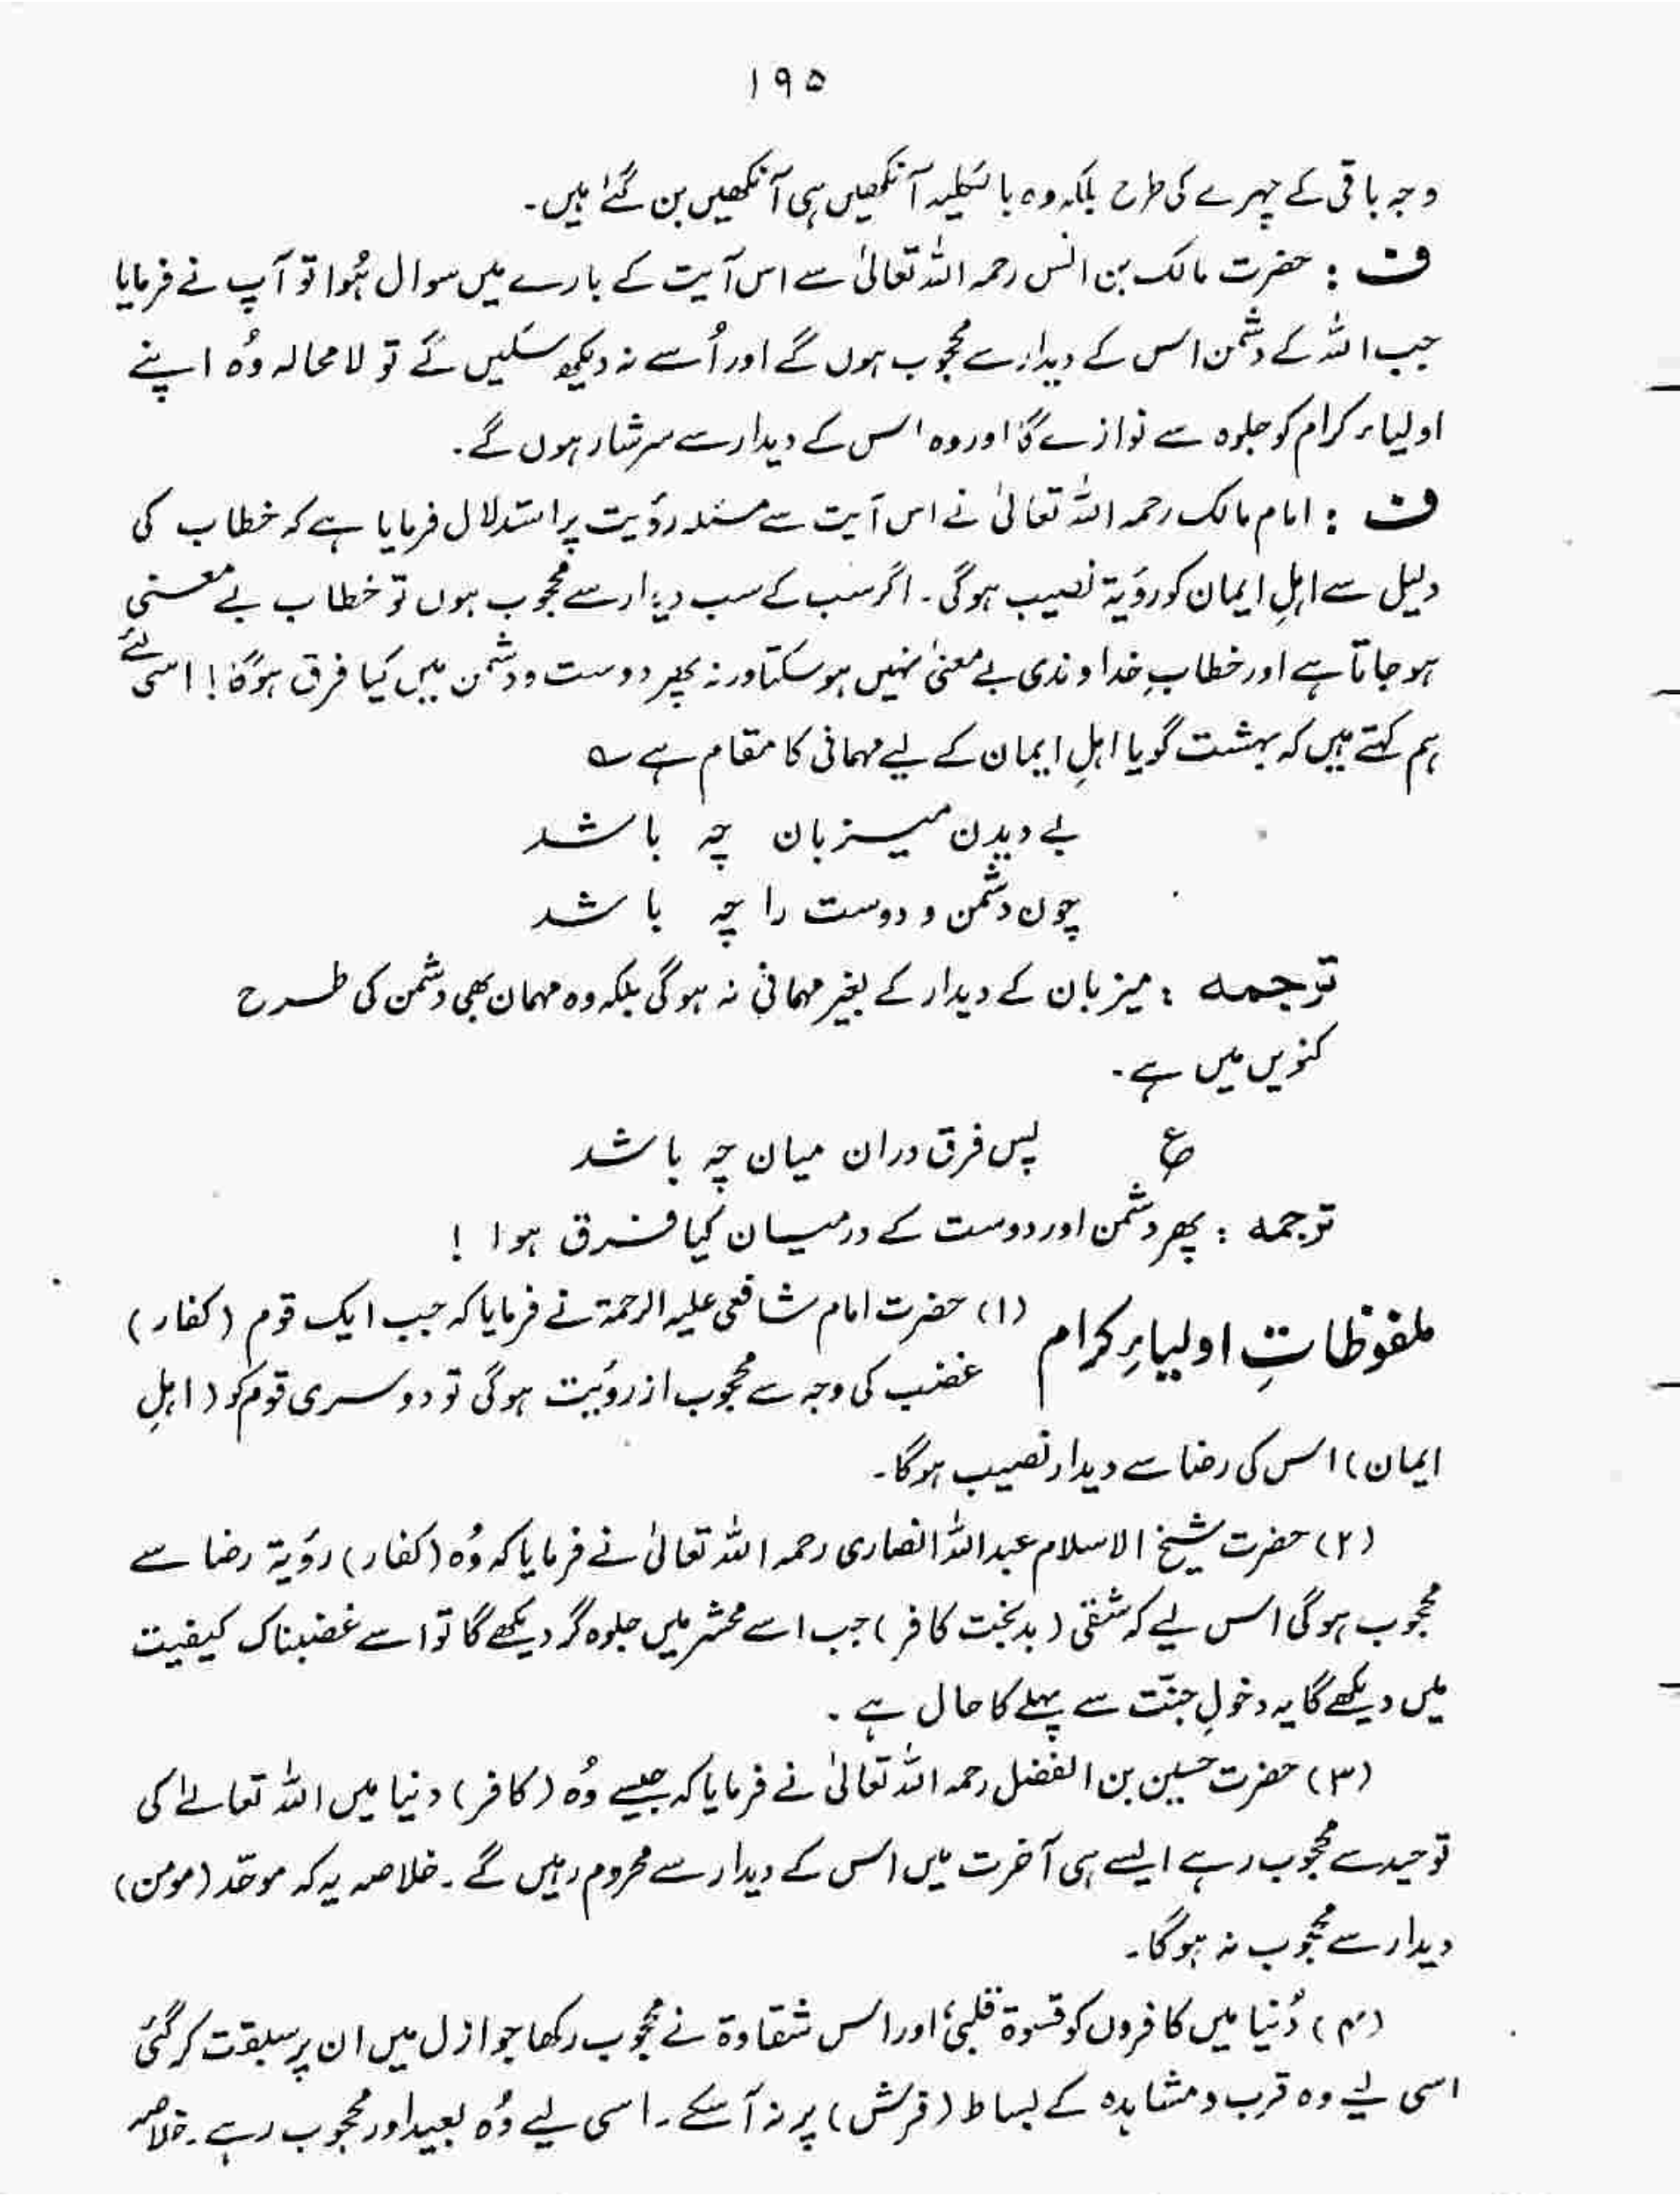 ۱۹۵
وجہ باقی کے چہرے کی طرح بلکہ وہ بالکلیہ آنکھیں ہی آنکھیں بن گئے ہیں۔
ف : حضرت مالک بن انس رحمہ اللہ تعالیٰ سے اس آیت کے بارے میں سوال ہُوا تو آپ نے فرمایا
جب اللہ کے دشمن اس کے دیدار سے محجوب ہوں گے اور اُسے نہ دیکھ سکیں گے تو لامحالہ وُہ اپنے
اولیاء کرام کو جلوہ سے نوازے گا اور وہ اس کے دیدار سے سرشار ہوں گے۔
ف : امام مالک رحمہ اللہ تعالیٰ نے اس آیت سے مسئلہ رؤیت پر استدلال فرمایا ہے کہ خطاب کی
دلیل سے اہلِ ایمان کو رؤیۃ نصیب ہوگی۔ اگر سب کے سب دیدار سے محجوب ہوں تو خطاب بے معنی
ہو جاتا ہے اور خطابِ خداوندی بے معنیٰ نہیں ہو سکتا ورنہ پھر دوست و دشمن میں کیا فرق ہوگا! اسی لئے
ہم کہتے ہیں کہ بہشت گویا اہلِ ایمان کے لیے مہمانی کا مقام ہے ؎
بے دیدن میزبان چہ باشد
چون دشمن و دوست را چہ باشد
ترجمہ : میزبان کے دیدار کے بغیر مہمانی نہ ہوگی بلکہ وہ مہمان بھی دشمن کی طرح
کنویں میں ہے۔
ع پس فرق دران میان چہ باشد
ترجمہ : پھر دشمن اور دوست کے درمیان کیا فرق ہوا !
ملفوظاتِ اولیاءِ کرام (۱) حضرت امام شافعی علیہ الرحمۃ نے فرمایا کہ جب ایک قوم (کفار)
غضب کی وجہ سے محجوب از رویٔت ہوگی تو دوسری قوم کو (اہلِ
ایمان) اس کی رضا سے دیدار نصیب ہوگا۔
(۲) حضرت شیخ الاسلام عبداللہ انصاری رحمہ اللہ تعالیٰ نے فرمایا کہ وُہ (کفار) رؤیۃ رضا سے
محجوب ہوگی اس لیے کہ شقی (بدبخت کافر) جب اسے محشر میں جلوہ گر دیکھے گا تو اسے غضبناک کیفیت
میں دیکھے گا یہ دخولِ جنّت سے پہلے کا حال ہے ۔
(۳) حضرت حسین بن الفضل رحمہ اللہ تعالیٰ نے فرمایا کہ جیسے وُہ (کافر) دنیا میں اللہ تعالےٰ کی
توحید سے محجوب رہے ایسے ہی آخرت میں اس کے دیدار سے محروم رہیں گے۔ خلاصہ یہ کہ موحّد (مومن)
دیدار سے محجوب نہ ہوگا۔
(۴) دُنیا میں کافروں کو قسوۃ قلبی اور اس شقاوۃ نے محجوب رکھا جو ازل میں ان پر سبقت کر گئی
اسی لیے وہ قرب و مشاہدہ کے بساط (فرش) پر نہ آسکے۔ اسی لیے وُہ بعید اور محجوب رہے۔ خلاصہ